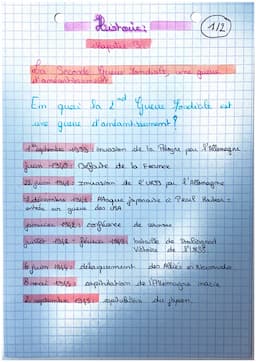 Histoire:
1/2
chapitre
La Seconde Guerre Mondiale, une guerre
d'anéantissement
Em quoi la 2nd Guerre Mondiale est
une guerre d'anéantissement?
1er septembre 1939: invasion de la Pologne par l'Allemagne
juin 1940: Défaite de la France
22 juin 1941: invasion de l'URSS par l'Allemagne
7 décembre 1941: Attaque japonaise à Pearl Harbor =
entrée en guerre des USA
janvier 1942: conférence de
juillet 1942 - février 1943: bataille de Stalingrad
Victoire de l'URSS
6 juin 1944: débarquement des Alliés en Normandie
8 mai 1945: capitulation de l'Allemagne nazie
2 septembre 1945: capitulation du Japon.